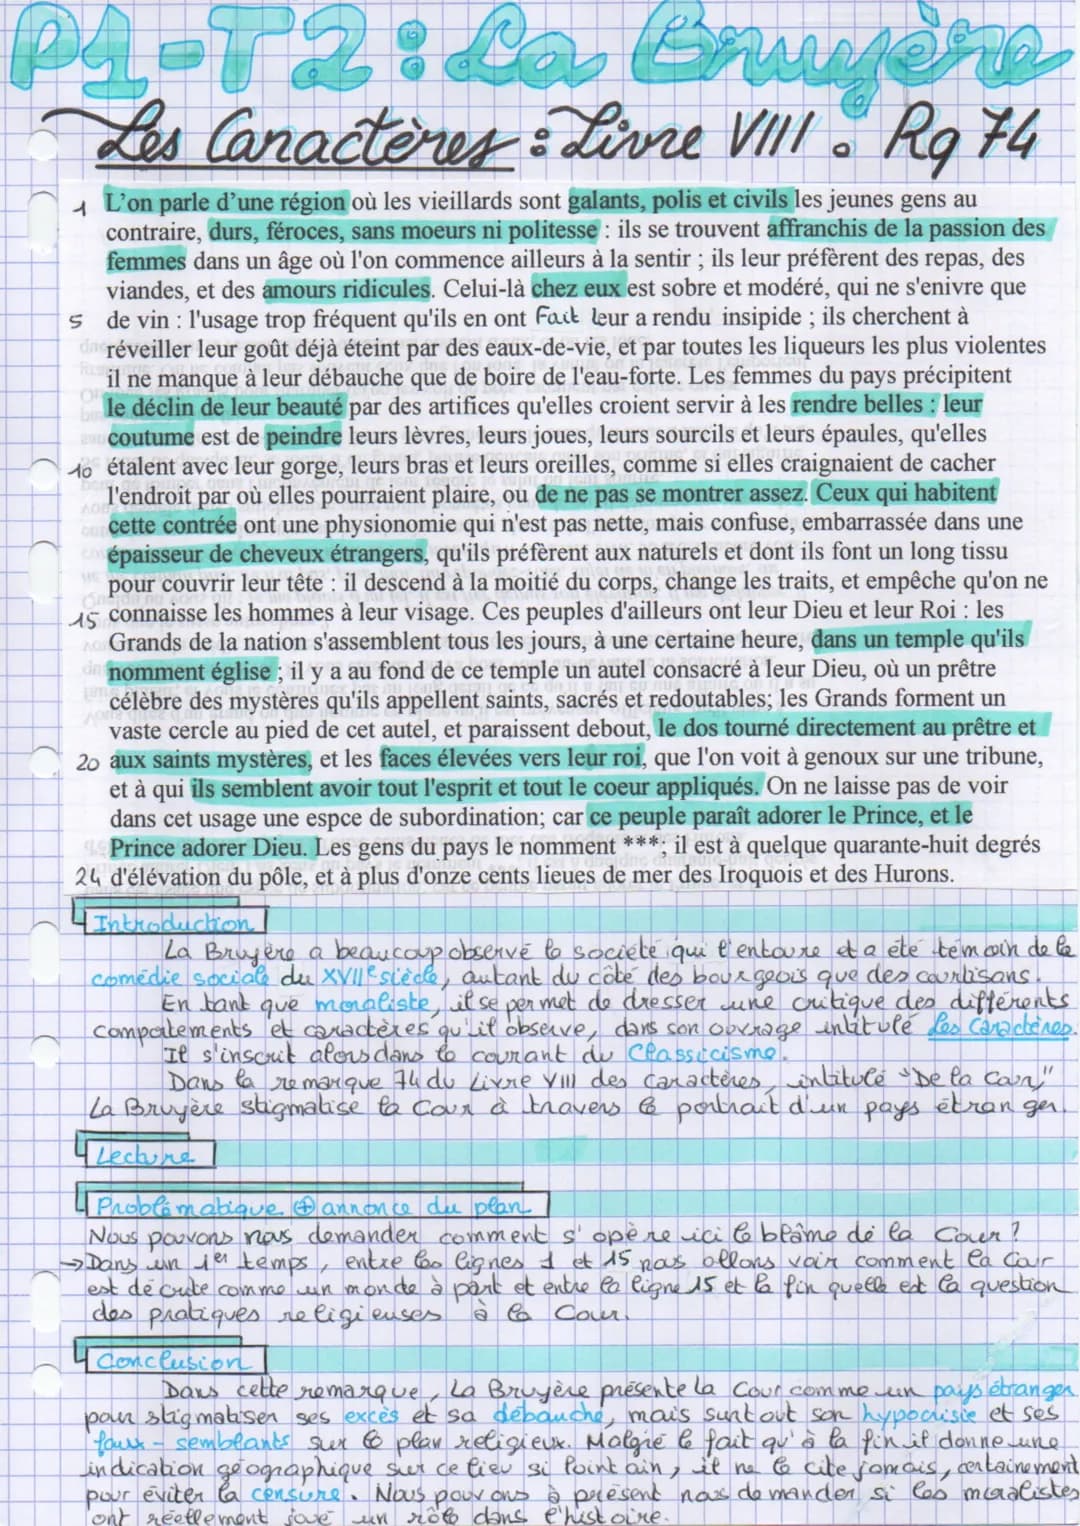 P1-T2 : La Bruyère
Les Caractères : Livre VIII. Rq 74
1 L'on parle d'une région où les vieillards sont galants, polis et civils les jeunes gens au
contraire, durs, féroces, sans moeurs ni politesse : ils se trouvent affranchis de la passion des
femmes dans un âge où l'on commence ailleurs à la sentir ; ils leur préfèrent des repas, des
viandes, et des amours ridicules. Celui-là chez eux est sobre et modéré, qui ne s'enivre que
5 de vin : l'usage trop fréquent qu'ils en ont Fait leur a rendu insipide ; ils cherchent à
réveiller leur goût déjà éteint par des eaux-de-vie, et par toutes les liqueurs les plus violentes
il ne manque à leur débauche que de boire de l'eau-forte. Les femmes du pays précipitent
le déclin de leur beauté par des artifices qu'elles croient servir à les rendre belles : leur
coutume est de peindre leurs lèvres, leurs joues, leurs sourcils et leurs épaules, qu'elles
10 étalent avec leur gorge, leurs bras et leurs oreilles, comme si elles craignaient de cacher
l'endroit par où elles pourraient plaire, ou de ne pas se montrer assez. Ceux qui habitent
cette contrée ont une physionomie qui n'est pas nette, mais confuse, embarrassée dans une
épaisseur de cheveux étrangers, qu'ils préfèrent aux naturels et dont ils font un long tissu
pour couvrir leur tête : il descend à la moitié du corps, change les traits, et empêche qu'on ne
15 connaisse les hommes à leur visage. Ces peuples d'ailleurs ont leur Dieu et leur Roi : les
Grands de la nation s'assemblent tous les jours, à une certaine heure, dans un temple qu'ils
nomment église ; il y a au fond de ce temple un autel consacré à leur Dieu, où un prêtre
célèbre des mystères qu'ils appellent saints, sacrés et redoutables; les Grands forment un
vaste cercle au pied de cet autel, et paraissent debout, le dos tourné directement au prêtre et
20 aux saints mystères, et les faces élevées vers leur roi, que l'on voit à genoux sur une tribune,
et à qui ils semblent avoir tout l'esprit et tout le coeur appliqués. On ne laisse pas de voir
dans cet usage une espce de subordination; car ce peuple paraît adorer le Prince, et le
Prince adorer Dieu. Les gens du pays le nomment ***; il est à quelque quarante-huit degrés
24 d'élévation du pôle, et à plus d'onze cents lieues de mer des Iroquois et des Hurons.
Introduction
La Bruyère a beaucoup observé la société qui l'entoure et a été témoin de la
comédie sociale du XVIIe siècle, autant du côté des bourgeois que des courtisans.
En tant que moraliste, il se permet de dresser une critique des différents
comportements et caractères qu'il observe, dans son ouvrage intitulé Les Caractères.
Il s'inscrit alors dans le courant du Classicisme.
Dans la remarque 74 du Livre VIII des caractères, intitulé "De la Cour,"
La Bruyère stigmatise la Cour à travers le portrait d'un pays étranger.
Lecture
Problématique ⊕ annonce du plan
Nous pouvons nous demander comment s'opère ici le blâme de la Cour ?
→ Dans un 1er temps, entre les lignes 1 et 15 nous allons voir comment la Cour
est décrite comme un monde à part et entre la ligne 15 et la fin quelle est la question
des pratiques religieuses à la Cour.
Conclusion
Dans cette remarque, La Bruyère présente la Cour comme un pays étranger
pour stigmatiser ses excès et sa débauche, mais surtout son hypocrisie et ses
faux-semblants sur le plan religieux. Malgré le fait qu'à la fin il donne une
indication géographique sur ce lieu si lointain, il ne le cite jamais, certainement
pour éviter la censure. Nous pouvons à présent nous demander si les moralistes
ont réellement joué un rôle dans l'histoire.